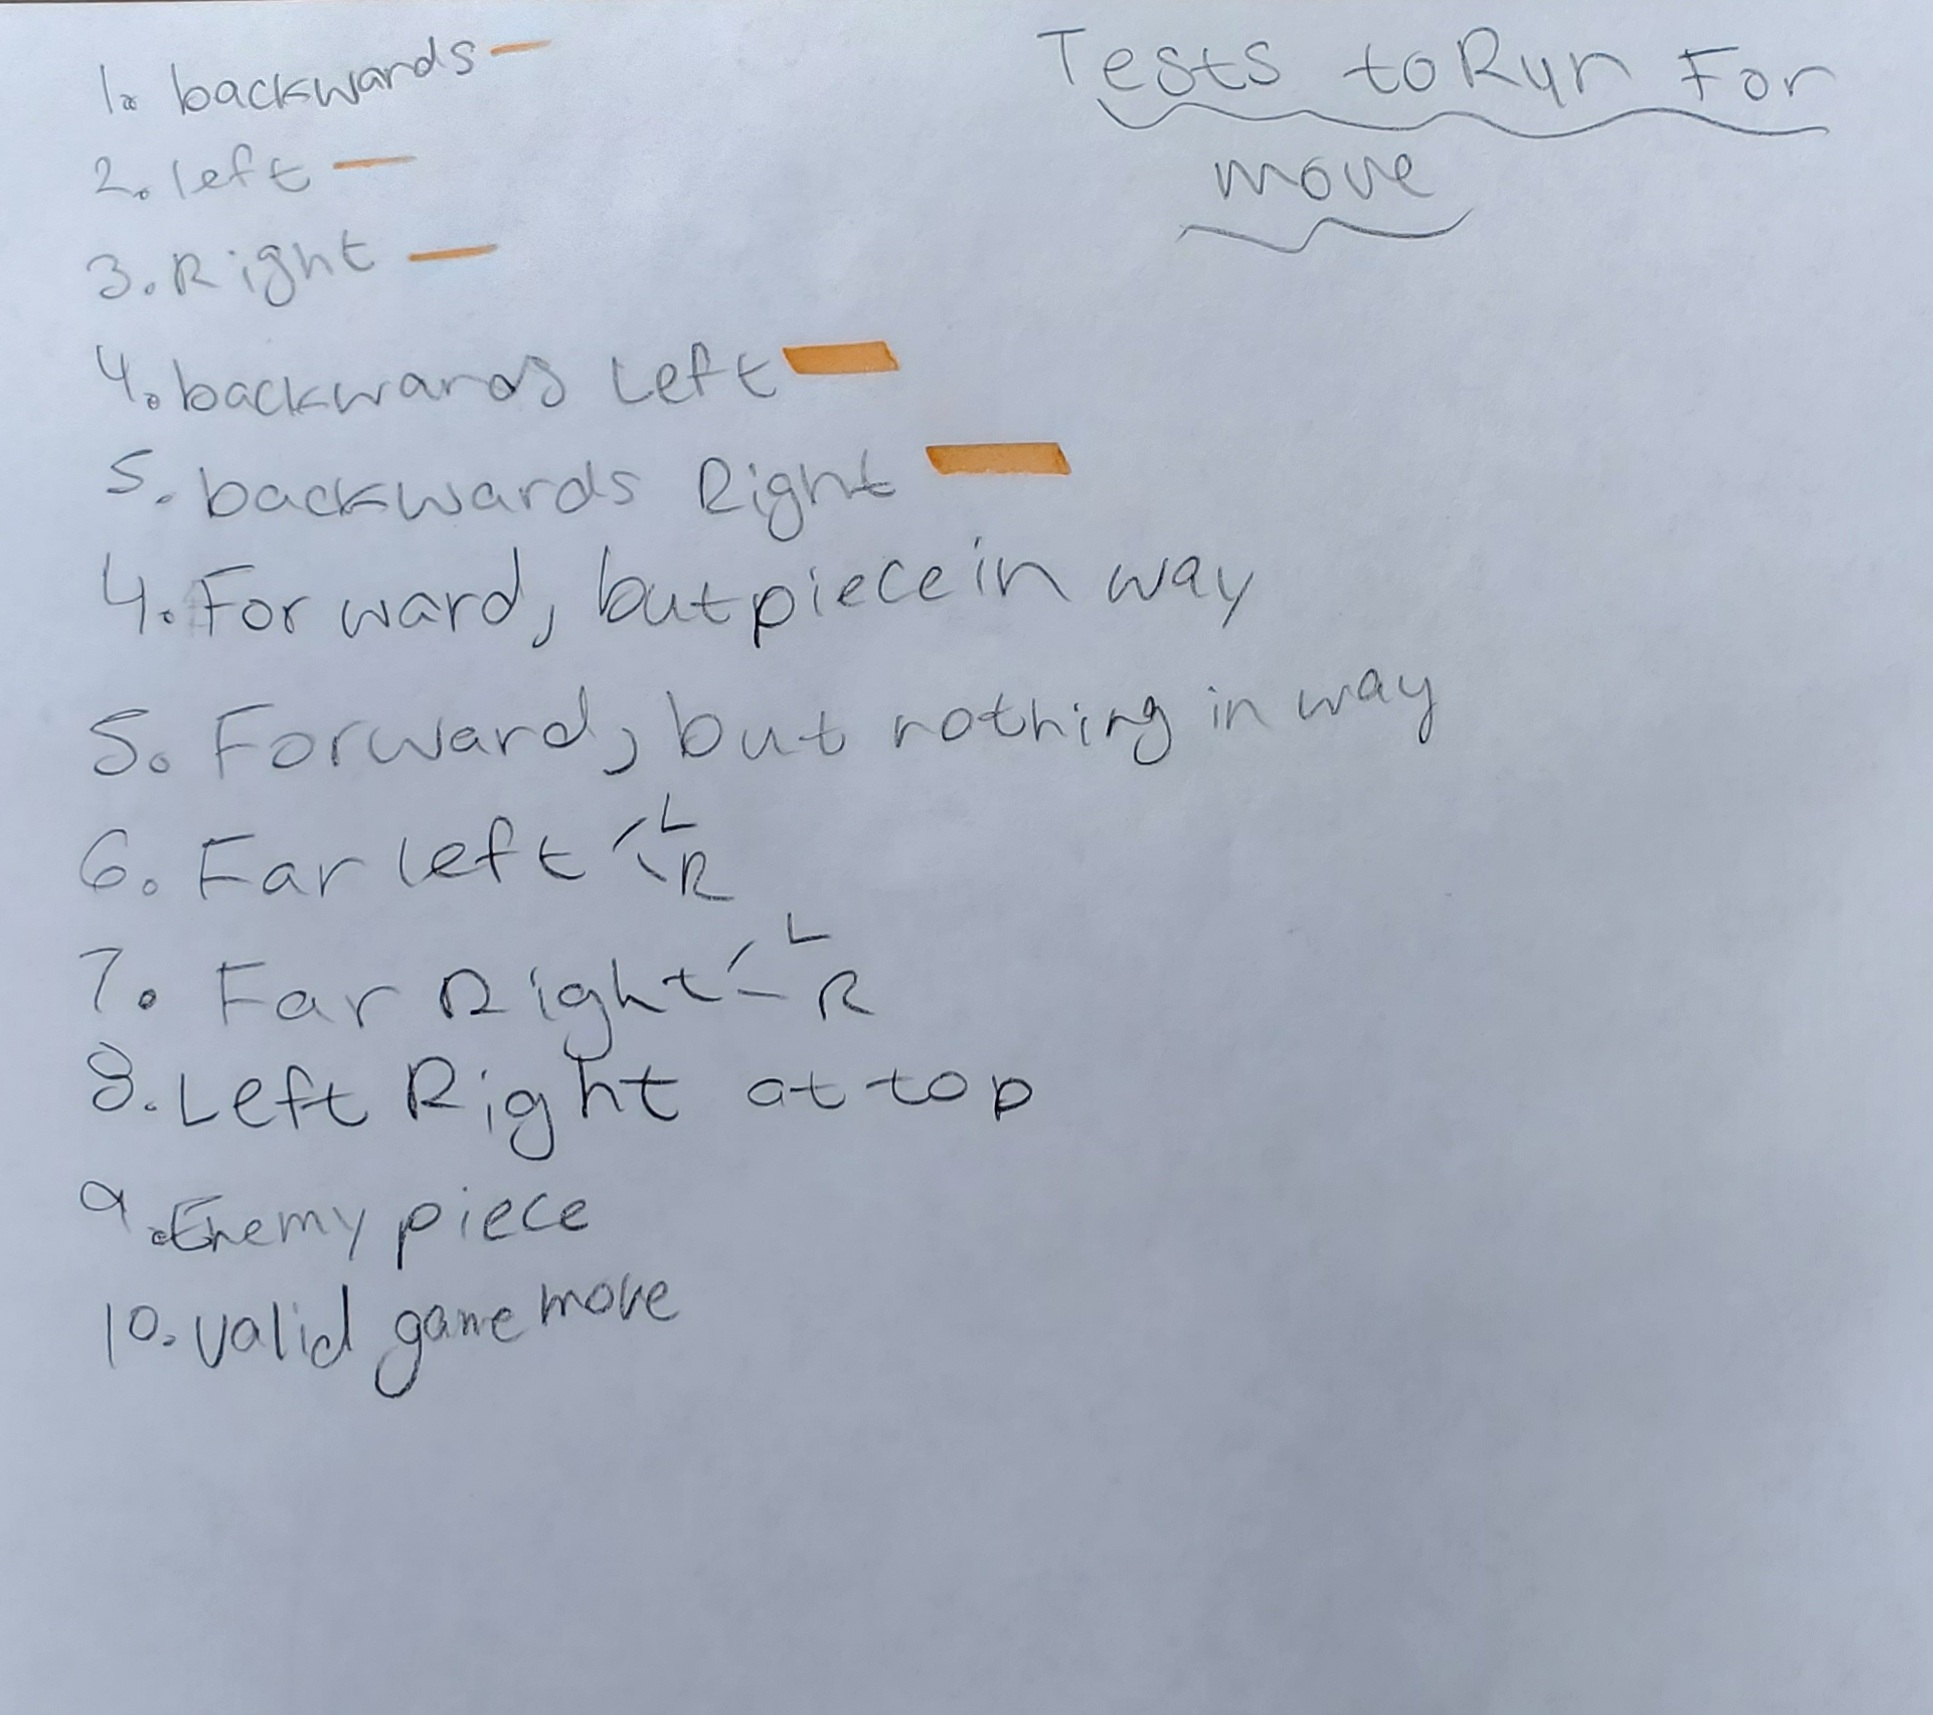 Tests to Run For
move
1. backwards
2. left
3. Right
4. backwards Left
5. backwards Right
4. Forward, but piece in way
5. Forward, but nothing in way
6. Far left L
R
7. Far Right L
R
8. Left Right at top
9. Enemy piece
10. valid game move